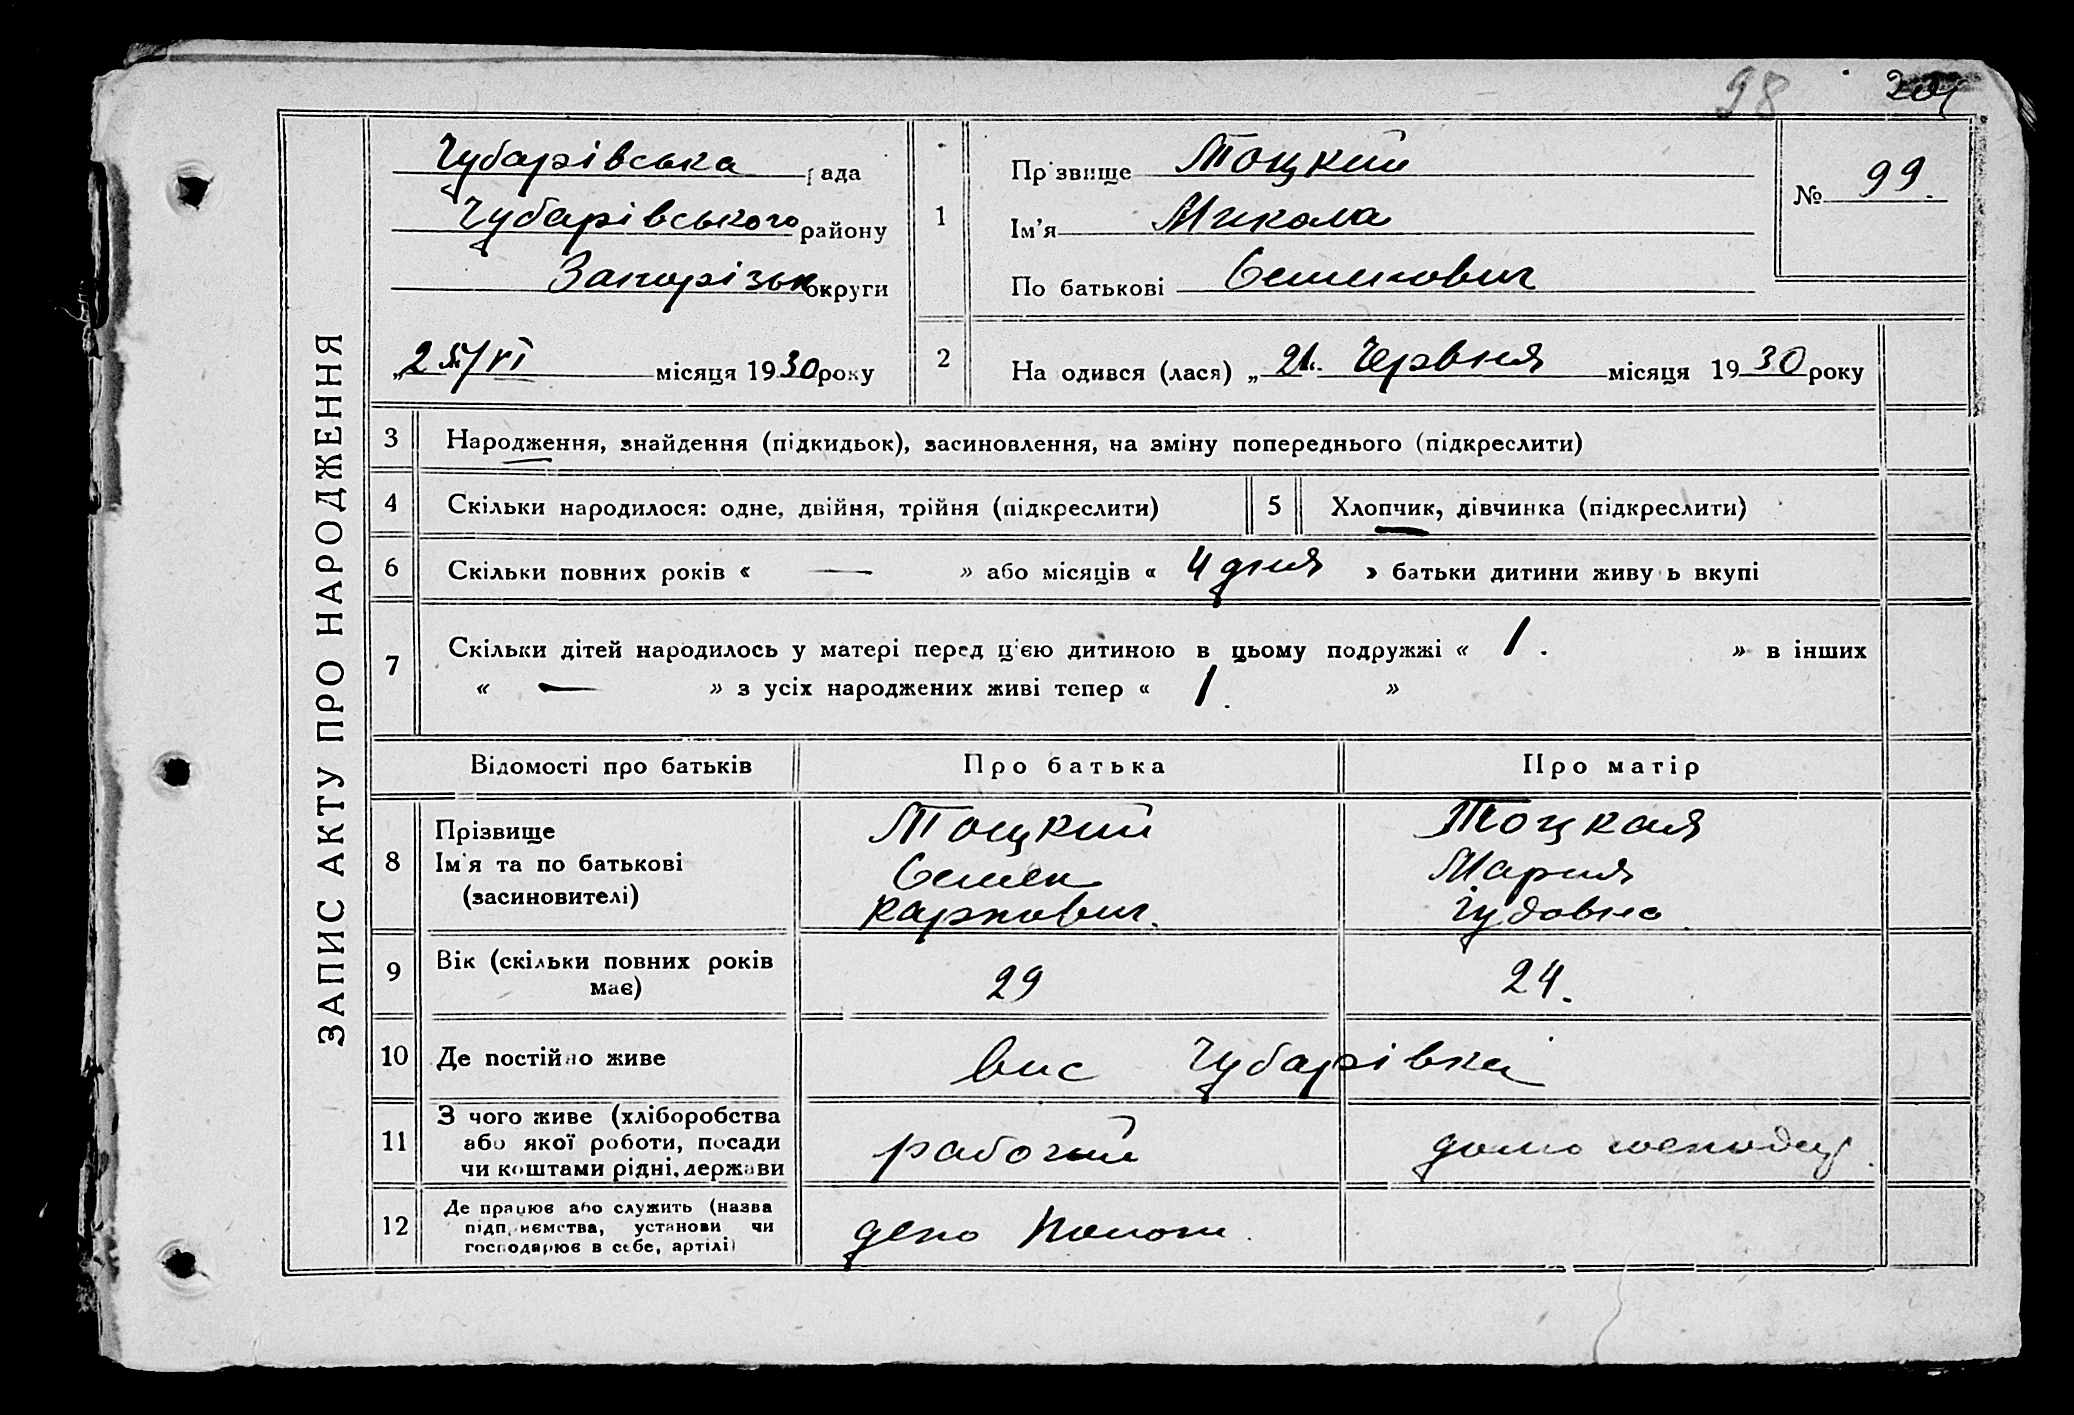 98 201
ЗАПИС АКТУ ПРО НАРОДЖЕННЯ
Чубарівська рада
Чубарівського району
Запорізьк округи
„25/VI місяця 1930 року
1
Прізвище Тоцкий
Ім'я Микола
По батькові Семенович
№ 99.
2
На одився (лася) „21“ Червня місяця 1930 року
3 Народження, знайдення (підкидьок), засиновлення, на зміну попереднього (підкреслити)
4 Скільки народилося: одне, двійня, трійня (підкреслити)
5 Хлопчик, дівчинка (підкреслити)
6 Скільки повних років « — » або місяців « 4 дня » батьки дитини живу ь вкупі
7 Скільки дітей народилось у матері перед ц'єю дитиною в цьому подружжі « 1. » в інших
« — » з усіх народжених живі тепер « 1. »
Відомості про батьків Про батька Про матір
8
Прізвище Тоцкий Тоцкая
Ім'я та по батькові Семен Мария
(засновителі) Карпович. Гудовна
9 Вік (скільки повних років має) 29 24.
10 Де постійно живе вис Чубарівка
11 З чого живе (хліборобства
або якої роботи, посади рабочий домо господ.
чи коштами рідні, держави
12 Де працює або служить (назва
підприємства, установи чи депо Пологи
господарює в себе, артілі)